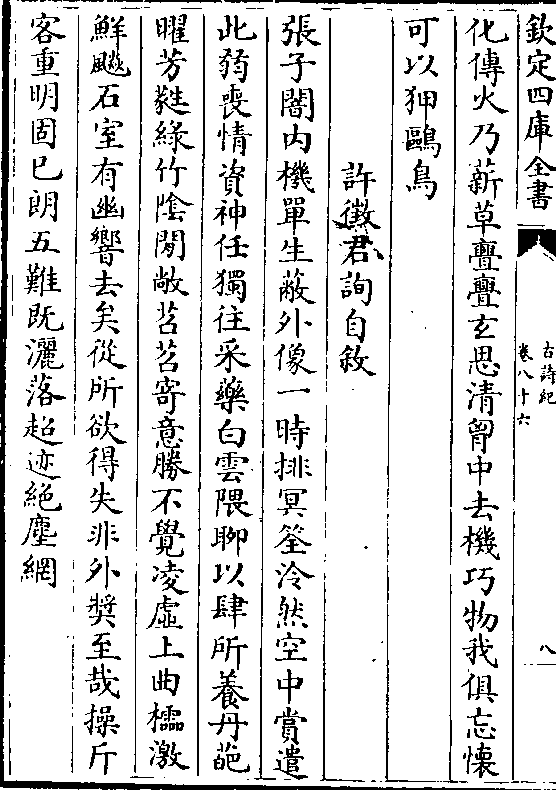 欽定四庫全書
古詩紀
卷八十六
八
化傳火乃薪草亹亹玄思清胷中去機巧物我俱忘懷
可以狎鷗鳥
許徵君詢自敘
張子闇内機單生蔽外像一時排冥筌泠然空中賞遣
此弱喪情資神任獨往采藥白雲隈聊以肆所養丹葩
曜芳蕤綠竹陰閒敞苕苕寄意勝不覺凌虛上曲櫺激
鮮飈石室有幽響去矣從所欲得失非外奬至哉操斤
客重明固已朗五難既灑落超迹絶塵網